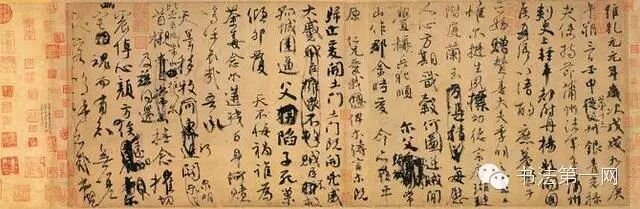 維乾元元年歲次戊戌九月庚
午朔三日壬申第十三叔銀青光祿
夫使持節蒲州諸軍事蒲州
刺史上輕車都尉丹楊縣開
國侯真卿以清酌庶羞祭于
亡姪贈贊善大夫季明之靈曰
惟爾挺生夙標幼德宗廟瑚璉
階庭蘭玉每慰
人心方期戩穀何圖逆賊閒
釁稱兵犯順爾父
常山作郡余時受命亦在平
原仁兄愛我俾爾傳言爾既
歸止爰開土門土門既開兇威
大蹙賊臣不救
孤城圍逼父陷子死巢
傾卵覆天不悔禍誰為
荼毒念爾遘殘百身何贖
嗚呼哀哉吾承
天澤移牧河關泉明
及茲同還撫念摧切
震悼心顏方俟
魂而有知無嗟
嗚呼哀哉尚饗
书法第一网